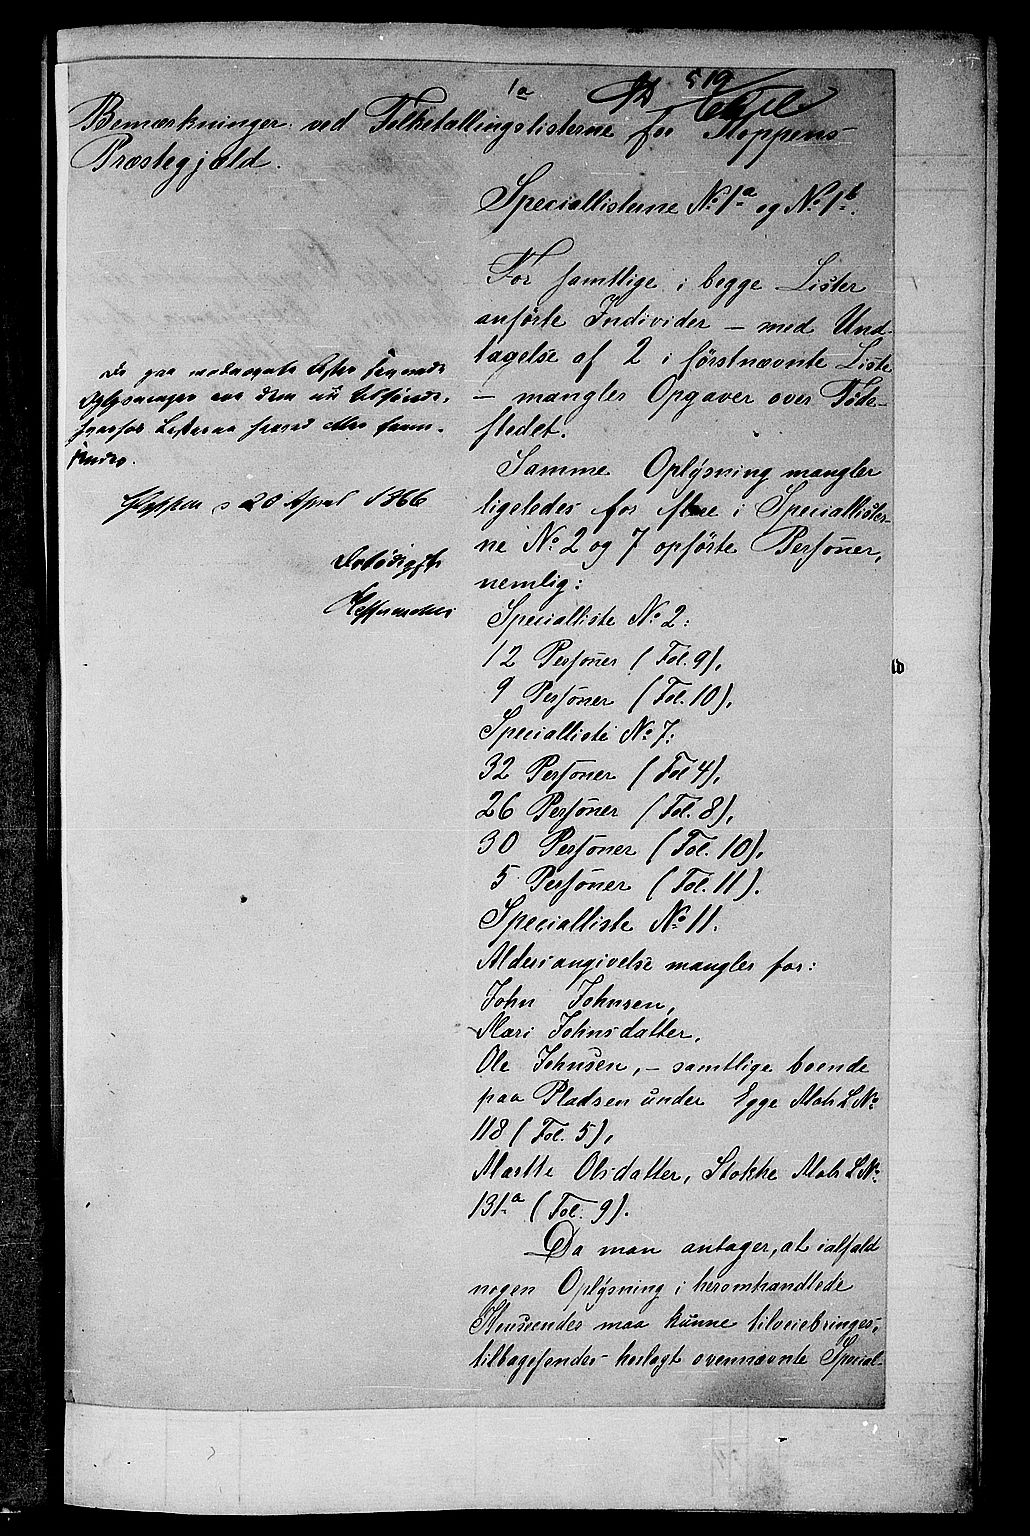 1a
519
Bemærkninger ved Folketællingslisterne for Kleppens
Præstegjæld.
Speciallisterne No 1a og No 1b.
For samtlige i begge Lister
anførte Individer – med Und-
tagelse af 2 i førstnævnte Liste
– mangler Opgaver over Føde-
stedet.
Samme Oplysning mangler
ligeledes for flere i Speciallister-
ne No 2 og 7 opførte Personer,
nemlig:
Specialliste No 2:
12 Personer (Fol. 9),
9 Personer (Fol. 10),
Specialliste No 7:
32 Personer (Fol 4),
26 Personer (Fol. 8),
30 Personer (Fol. 10),
5 Personer (Fol. 11).
Specialliste No 11.
Aldersangivelse mangler for:
John Johnsen,
Mari Johnsdatter,
Ole Johnsen, – samtlige boende
paa Pladsen under Egge Matr L No
118 (Fol. 5),
Marthe Olsdatter, Stokke Matr L No
131a (Fol. 9).
Da man antager, at ialfald
nogen Oplysning i heromhandlede
Henseender maa kunne tilveiebringes,
tilbagesendes herlagt ovennævnte Special-
De paa modstaaende
Oplysninger ere dem nu tilføiede,
hvorfor Listerne hermed atter frem-
sendes.
Kleppen d 20 April 1866
Ærbødigst